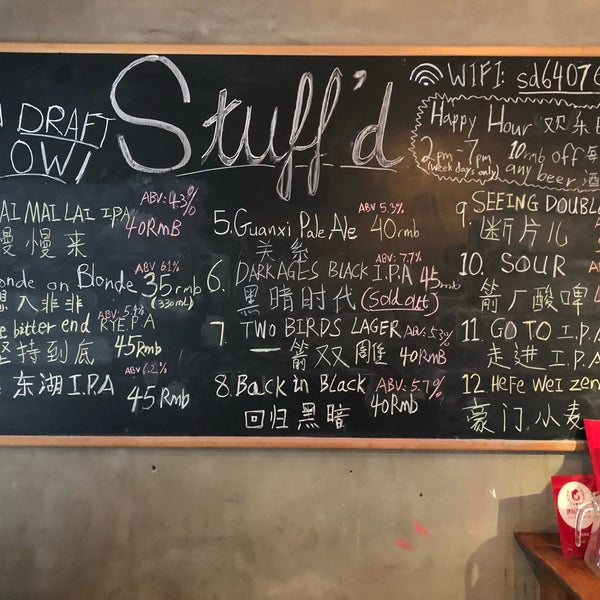 DRAFT
OW!
Stuff'd
WIFI: sd6407
Happy Hour 欢乐
2pm-7pm
(week days only)
10rmb off
any beer 酒
AI MAI LAI IPA ABV: 4.3%
40RmB
慢慢来
onde on Blonde ABV 6.1%
35rmb
(330ml)
入非非
e bitter end RYE.P.A ABV: 5.9%
坚持到底 45Rmb
东湖 I.P.A ABV: 6.2%
45 Rmb
5. Guanxi Pale Ale ABV 5.3%
40rmb
关系
6. DARK AGES BLACK I.P.A ABV: 7.7%
45rmb
黑暗时代 (Sold out)
7. TWO BIRDS LAGER ABV: 5.3%
一箭双雕 40RmB
8. Back in Black ABV: 5.7%
40Rmb
回归黑暗
9 SEEING DOUBL
断片儿
10. SOUR
箭厂酸啤
11. GO TO I.P.A
走进 I.P.A
12. HEFE WEI ZEN
豪门小麦